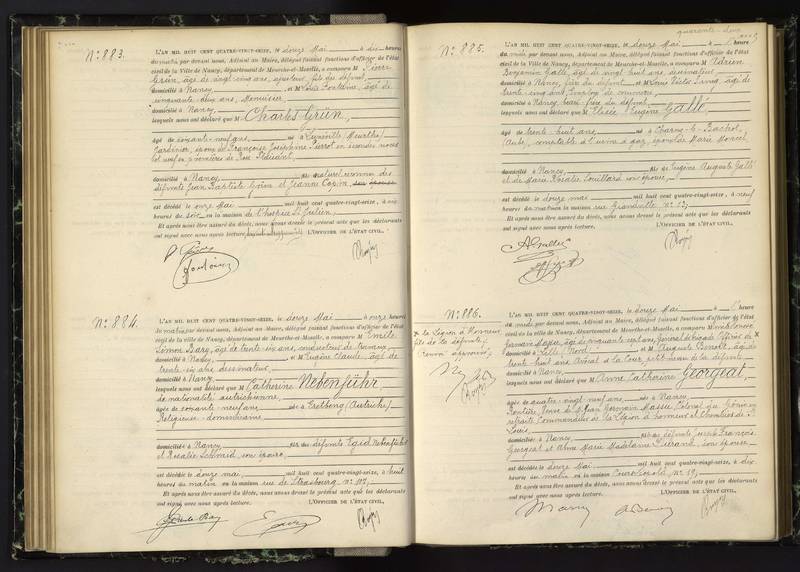 N° 883.
L'AN MIL HUIT CENT QUATRE-VINGT-SEIZE, le douze Mai à dix heures
du matin par devant nous, Adjoint au Maire, délégué faisant fonctions d'officier de l'état
civil de la Ville de Nancy, département de Meurthe-et-Moselle, a comparu M Pierre
Grün, âgé de vingt cinq ans, ajusteur, fils du défunt,
domicilié à Nancy, et M Louis Fontaine, âgé de
cinquante deux ans, Menuisier
domicilié à Nancy,
lesquels nous ont déclaré que M Charles Grün,
âgé de soixante neuf ans né à Lunéville (Meurthe)
Jardinier, époux de Françoise Joséphine Pierrot en secondes noces
domicilié à Nancy fils naturel reconnu des
défunts Jean Baptiste Grün et Jeanne Copin,
est décédé le onze Mai mil huit cent quatre-vingt-seize, à
heures du soir en la maison de l'hospice St Julien
Et après nous être assuré du décès, nous avons dressé le présent acte que les déclarants
ont signé avec nous après lecture.
L'OFFICIER DE L'ÉTAT CIVIL,
N° 884.
L'AN MIL HUIT CENT QUATRE-VINGT-SEIZE, le douze Mai à onze heures
du matin par devant nous, Adjoint au Maire, délégué faisant fonctions d'officier de l'état
civil de la ville de Nancy, département de Meurthe-et-Moselle, a comparu M Emile
Simon Bary, âgé de trente six ans, conducteur de travaux,
domicilié à Nancy, et M Eugène Claude, âgé de
trente six ans, dessinateur,
domicilié à Nancy
lesquels nous ont déclaré que M Catherine Nebenführ,
de nationalité autrichienne,
âgée de soixante neuf ans née à (Autriche)
Religieuse dominicaine
domiciliée à Nancy fille des défunts Egid Nebenführ
et Rosalie Schmid, son épouse,
est décédée le douze mai, mil huit cent quatre-vingt-seize, à huit
heures du matin en la maison rue de Strasbourg n°
Et après nous être assuré du décès, nous avons dressé le présent acte que les déclarants
ont signé avec nous après lecture.
L'OFFICIER DE L'ÉTAT CIVIL,
quarante-deux
N° 885.
L'AN MIL HUIT CENT QUATRE-VINGT-SEIZE, le douze Mai à heure
du par devant nous, Adjoint au Maire, délégué faisant fonctions d'officier de l'état
civil de la Ville de Nancy, département de Meurthe-et-Moselle, a comparu M Adrien
Benjamin Gallé, âgé de vingt huit ans, dessinateur,
domicilié à Nancy, frère du défunt et M Louis Victor âgé de
trente cinq ans, Employé de commerce,
domicilié à Nancy, beau-frère du défunt,
lesquels nous ont déclaré que M Elisée Eugène Gallé
âgé de trente huit ans né à Charny-le-Bachot,
(Aube), comptable à l'usine à gaz, époux de Marie Moncel,
domicilié à Nancy, fils de Eugène Auguste Gallé
et de Marie Rosalie Souillard son épouse,
est décédé le douze mai mil huit cent quatre-vingt-seize, à neuf
heures du matin en la maison rue Grandville n° 13,
Et après nous être assuré du décès, nous avons dressé le présent acte que les déclarants
ont signé avec nous après lecture.
L'OFFICIER DE L'ÉTAT CIVIL,
N° 886.
x la Légion d'honneur
fils de la défunte,
(renvoi approuvé)
L'AN MIL HUIT CENT QUATRE-VINGT-SEIZE, le douze Mai à heure
du par devant nous, Adjoint au Maire, délégué faisant fonctions d'officier de l'état
civil de la Ville de Nancy, département de Meurthe-et-Moselle, a comparu M
Germain Massu, âgé de cinquante sept ans, Général de brigade, Officier de x
domicilié à Lille (Nord) et M Auguste Benoit, âgé de
trente huit ans, Avocat à la Cour, petit-neveu de la défunte,
domicilié à Nancy
lesquels nous ont déclaré que M Anne Catherine Georgeat,
âgée de quatre-vingt neuf ans née à Nancy
Rentière, Veuve de Jean Germain Massu, Colonel du Génie en
retraite, Commandeur de la Légion d'honneur et Chevalier de St
Louis,
domiciliée à Nancy fille des défunts Joseph François
Georgeat et Anne Marie Madeleine son épouse
est décédée le douze mai mil huit cent quatre-vingt-seize, à dix
heures du matin en la maison Cours Léopold n° 19,
Et après nous être assuré du décès, nous avons dressé le présent acte que les déclarants
ont signé avec nous après lecture.
L'OFFICIER DE L'ÉTAT CIVIL,